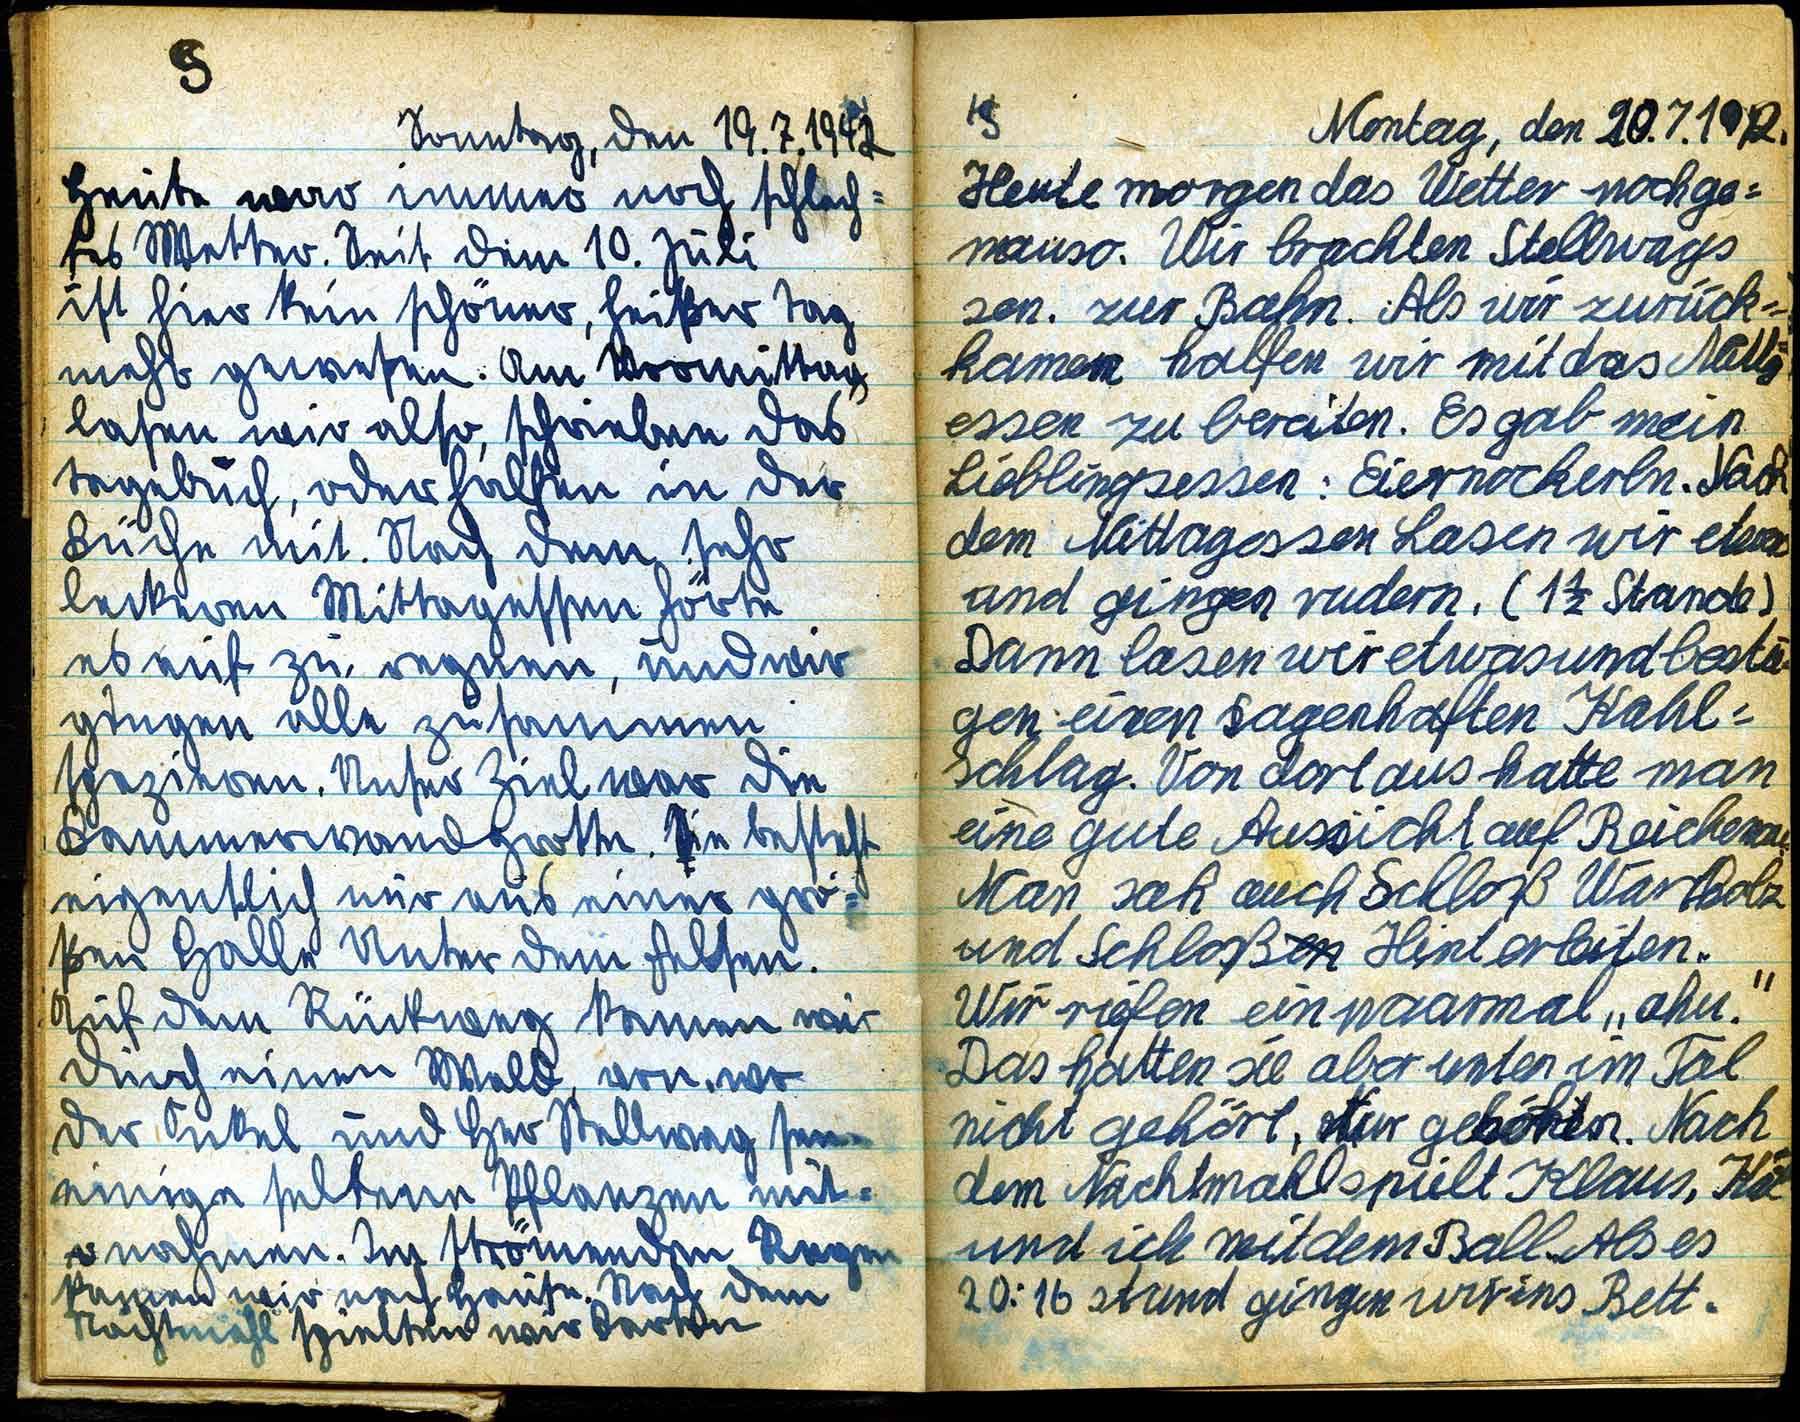 S
Sonntag, den 19.7.1942
Heute war immer noch schlech=
tes Wetter. Seit dem 10. Juli
ist hier kein schöner, heißer Tag
mehr gewesen. Am Vormittag
lasen wir also, schrieben das
Tagebuch, oder halfen in der
Küche mit. Nach dem sehr
leckeren Mittagessen hörte
es auf zu regnen, und wir
gingen alle zusammen
spazieren. Unser Ziel war die
Kammerwandgrotte. Sie besteht
eigentlich nur aus einer gro=
ßen Halle Unter dem Felsen.
Auf dem Rückweg kamen wir
durch einen Wald, von wo
der Onkel und Her Stellwag sen.
einige seltene Pflanzen mit=
nahmen. Im strömenden Regen
kamen wir nach Hause. Nach dem
Nachtmahl spielten wir Karten
Montag, den 20.7.1942.
Heute morgen das Wetter nochge=
nauso. Wir brachten Stellwags
sen. zur Bahn. Als wir zurück=
kamen halfen wir mit das Mittg
essen zu bereiten. Es gab mein
Lieblingsessen: Eiernockerln. Nach
dem Mittagessen Lasen wir etwas
und gingen rudern. (1½ Stunde)
Dann lasen wir etwas und bestie=
gen einen sagenhaften Kahl=
schlag. Von dort aus hatte man
eine gute Aussicht auf Reichenau.
Man sah auch Schloß Wartholz
und Schloß Hinterleiten.
Wir riefen ein paarmal „ahu."
Das hatten sie aber unten im Tal
nicht gehört, Nur . Nach
dem Nachtmahl spielt Klaus,
und ich mit dem Ball. Als es
20:16 stund gingen wir ins Bett.